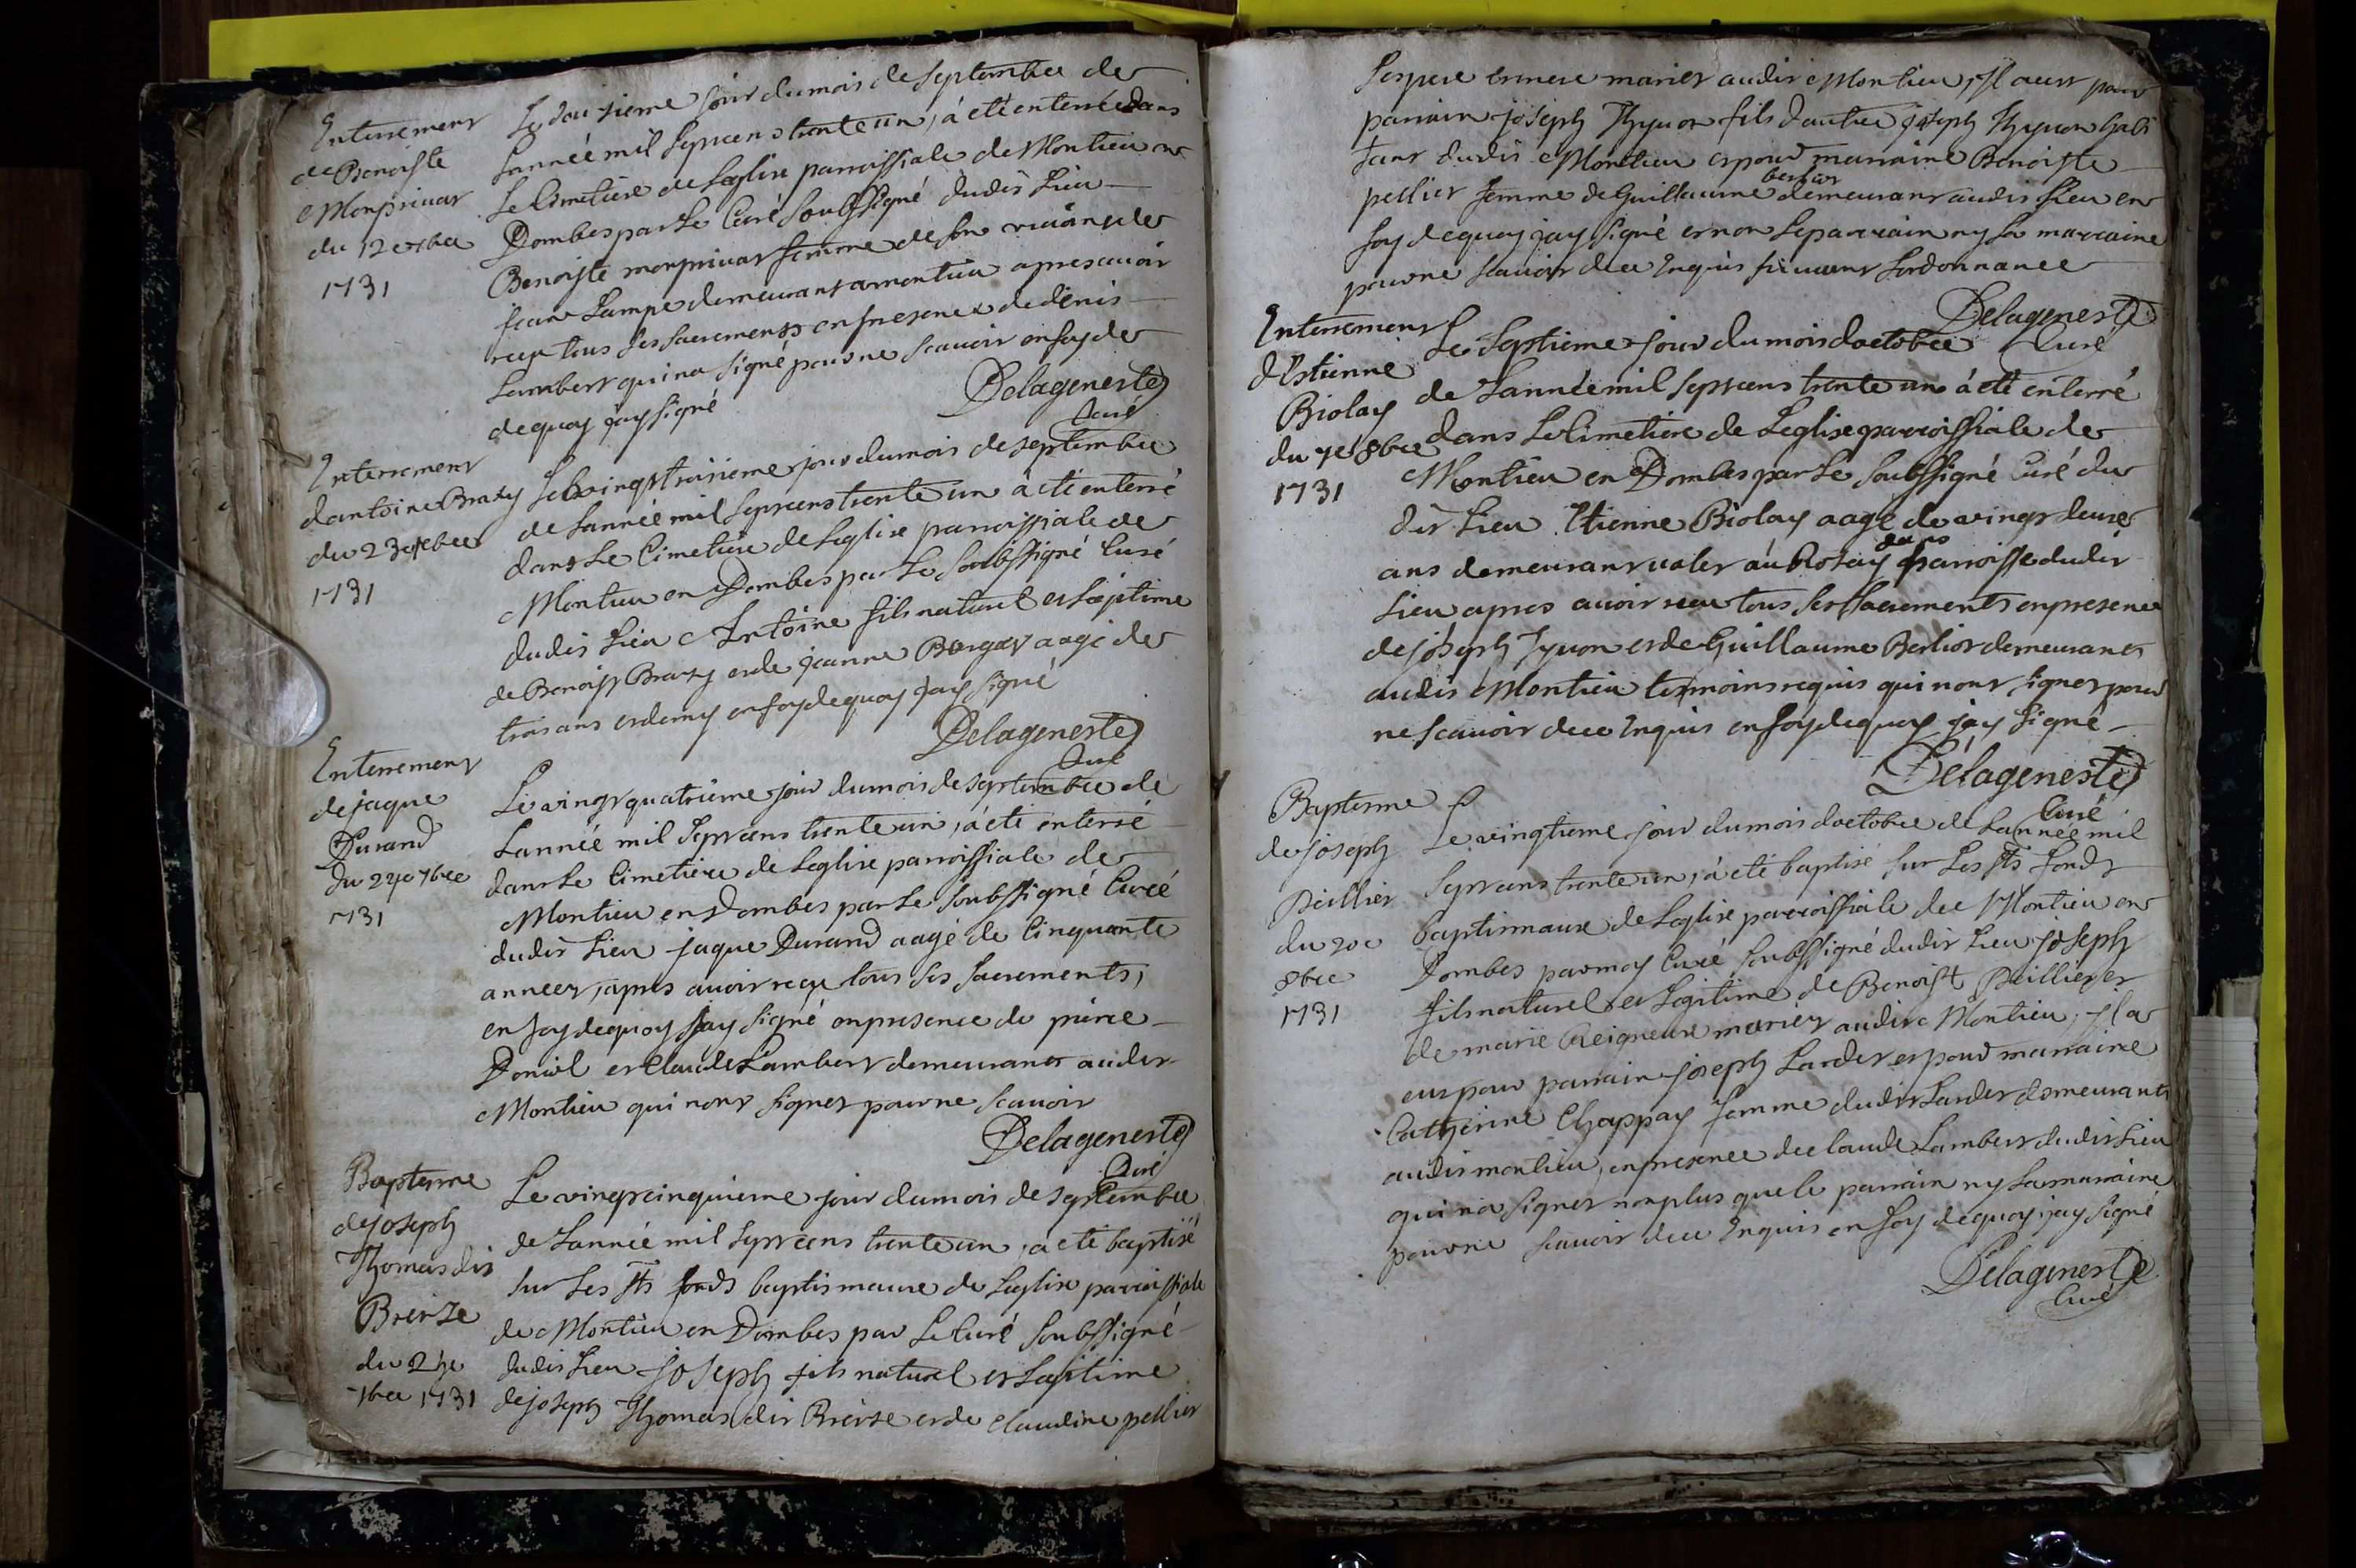 Enterrement
de Benoiste
Monprivat
du 12e 7bre
1731
Le douzieme jour du mois de septembre de
Lannéé mil sept cens trente un, á eté enterrée dans
Le Cimetiere de Leglise parroissiale de Montieu en
Dombes par Le Curé soubssigné dudit Lieu
Benoiste monprivat femme de son vivant de
jean Lampe demeurant a montieu apres avoir
reçu tous ses sacrements en presence de denis
Lambert qui na signé pour ne scavoir en foy de
de quoy jay signé
Delageneste
Curé
Enterrement
dantoine Brazy
du 23e 7bre
1731
Le vingt troisieme jour du mois de septembre
de Lannéé mil sept cens trente un á eté enterré
dans Le Cimetiere de Leglise parroissiale de
Montieu en Dombes par Le Soubssigné Curé
dudit Lieu Antoine fils naturel et Legitime
de Benoist Brazy et de jeanne Bergar aagé de
trois ans et demy en foy de quoy jay signé
Delageneste
Curé
Enterrement
de jaque
Durand
du 24e 7bre
1731
Le vingt quatrieme jour du mois de septembre de
Lannéé mil sept cens trente un, á eté enterré
dans Le Cimetiere de Leglise parroissiale de
Montieu en Dombes par Le soubssigné Curé
dudit Lieu jaque Durand aagé de Cinquante
annees, apres avoir reçu tous ses sacrements,
en foy de quoy jay signé en presence de pierre
Doniol et Claude Lambert demeurants audit
Montieu qui nont signer pour ne scavoir
Delageneste
Curé
Baptesme
de joseph
Thomas dit
Breize
du 25e
7bre 1731
Le vingt cinquieme jour du mois de septembre
de Lannéé mil sept cens trente un, a eté baptisé
sur Les sts fonds baptismaux de Leglise parroissiale
de Montieu en Dombes par Le Curé soubssigné
dudit Lieu joseph fils naturel et Legitime
de joseph Thomas dit Breize et de Claudine pellier
ses pere et mere mariez audit Montieu, Il a eut pour
parrain joseph Thyvon fils dautre joseph Thyvon habi
tant dudit Montieu et pour marraine Benoiste
pellier femme de Guillaume berlior demeurant audit Lieu en
foy de quoy jay signé et non Le parrain ny La marraine
pour ne scavoir de ce Enquis suivant Lordonnance
Delageneste
Curé
Enterrement
dEstienne
Biolay
du 7e 8bre
1731
Le Septieme jour du mois doctobre
de Lannéé mil sept cens trente un á eté enterré
dans Le Cimetiere de Leglise parroissiale de
Montieu en Dombes par Le soubssigné Curé du
dit Lieu Etienne Biolay aagé de vingt deux
ans demeurant valet au Rosay dans parroisse dudit
Lieu apres avoir reçu tous ses sacrements en presence
de joseph Tyvon et de Guillaume Berlior demeurants
audit Montieu temoins requis qui nont signer pour
ne scavoir de ce Enquis en foy de quoy jay signé
Delageneste
Curé
Baptesme
de joseph
Peillier
du 20e
8bre
1731
Le vingtieme jour du mois doctobre de Lannéé mil
sept cens trente un, á eté baptisé sur Les sts fonds
baptismaux de Leglise parroissiale de Montieu en
Dombes par moy Curé soubssigné dudit Lieu joseph
fils naturel et Legitime de Benoist Peillier et
de marie Creigneux mariez audit Montieu, Il a
eut pour parrain joseph Lardet et pour marraine
Catherine Chappay femme dudit Lardet demeurants
audit montieu, en presence de Claude Lambert dudit Lieu
qui na signer non plus que le parrain ny La marraine
pour ne scavoir de ce Enquis en foy de quoy jay signé
Delageneste
Curé